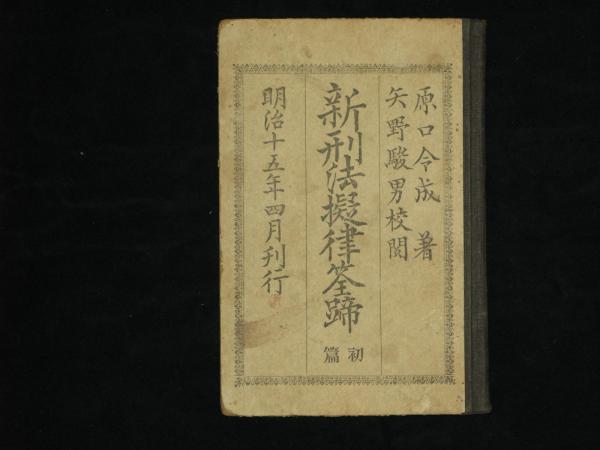 原口令成 著
矢野駿男校閲
新刑法擬律筌蹄
初篇
明治十五年四月刊行